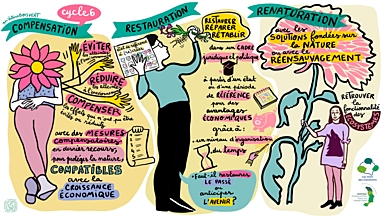 cycle 6
COMPENSATION
ÉVITER
RÉDUIRE
COMPENSER
les effets qui n'ont pu être
évités ou réduits
avec des MESURES
compensatoires
en dernier recours,
pour protéger la nature,
COMPATIBLES
avec la
CROISSANCE
ÉCONOMIQUE
RESTAURATION
RESTAURER
RÉPARER
RÉTABLIR
dans un CADRE
juridique et politique
à partir d'un état
ou d'une période
de RÉFÉRENCE
pour des
avantages
ÉCONOMIQUES
grâce à :
un niveau d'organisation
du temps
Faut-il restaurer
LE PASSÉ
ou anticiper
L'AVENIR ?
RENATURATION
avec les
SOLUTIONS fondées sur
la NATURE
ou avec le
RÉENSAUVAGEMENT
RETROUVER
la fonctionnalité
des
ÉCOSYSTÈMES